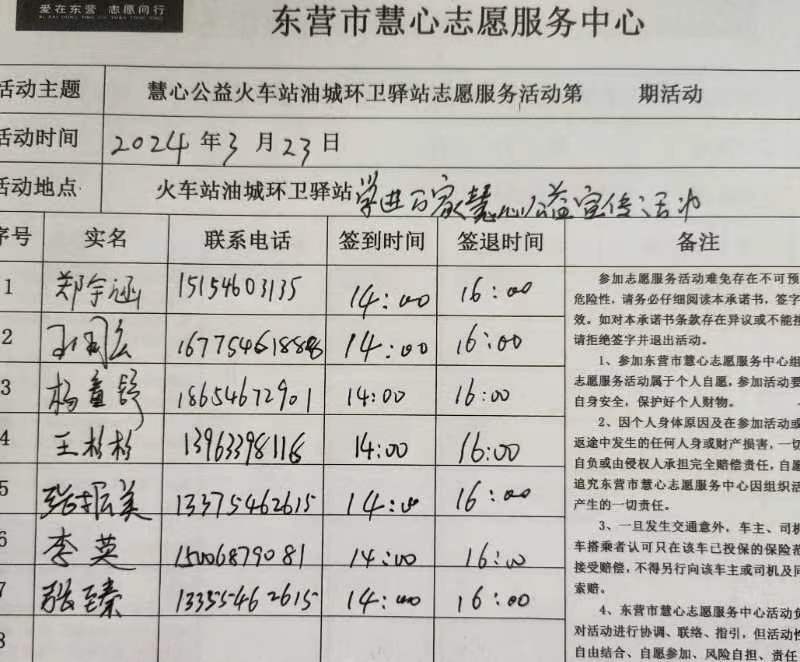 爱在东营 志愿同行
东营市慧心志愿服务中心
活动主题 慧心公益火车站油城环卫驿站志愿服务活动第 期活动
活动时间 2024年3月23日
活动地点 火车站油城环卫驿站学进万家慧心公益宣传活动
序号 实名 联系电话 签到时间 签退时间 备注
1 郑宇涵 15154603135 14:00 16:00
2 16:00 14:00
3 杨童舒 18654672901 14:00 16:00
4 王杉杉 13963398116 14:00 16:00
5 张振美 13375462615 14:00 16:00
6 李英 15006879081 14:00 16:00
7 张臻 13355462615 14:00 16:00
8
参加志愿服务活动难免存在不可预
危险性，请务必仔细阅读本承诺书，签字
效。如对本承诺书条款存在异议或不能接
请拒绝签字并退出活动。
1、参加东营市慧心志愿服务中心组
志愿服务活动属于个人自愿，参加活动要
自身安全，保护好个人财物。
2、因个人身体原因及在参加活动或
返途中发生的任何人身或财产损害，一切
自负或由侵权人承担完全赔偿责任，自愿
追究东营市慧心志愿服务中心因组织活
产生的一切责任。
3、一旦发生交通意外，车主、司机
车搭乘者认可只在该车已投保的保险范
接受赔偿，不得另行向该车主或司机及同
索赔。
4、东营市慧心志愿服务中心活动负
对活动进行协调、联络、指引，但活动性
自由结合、自愿参加、风险自担、责任